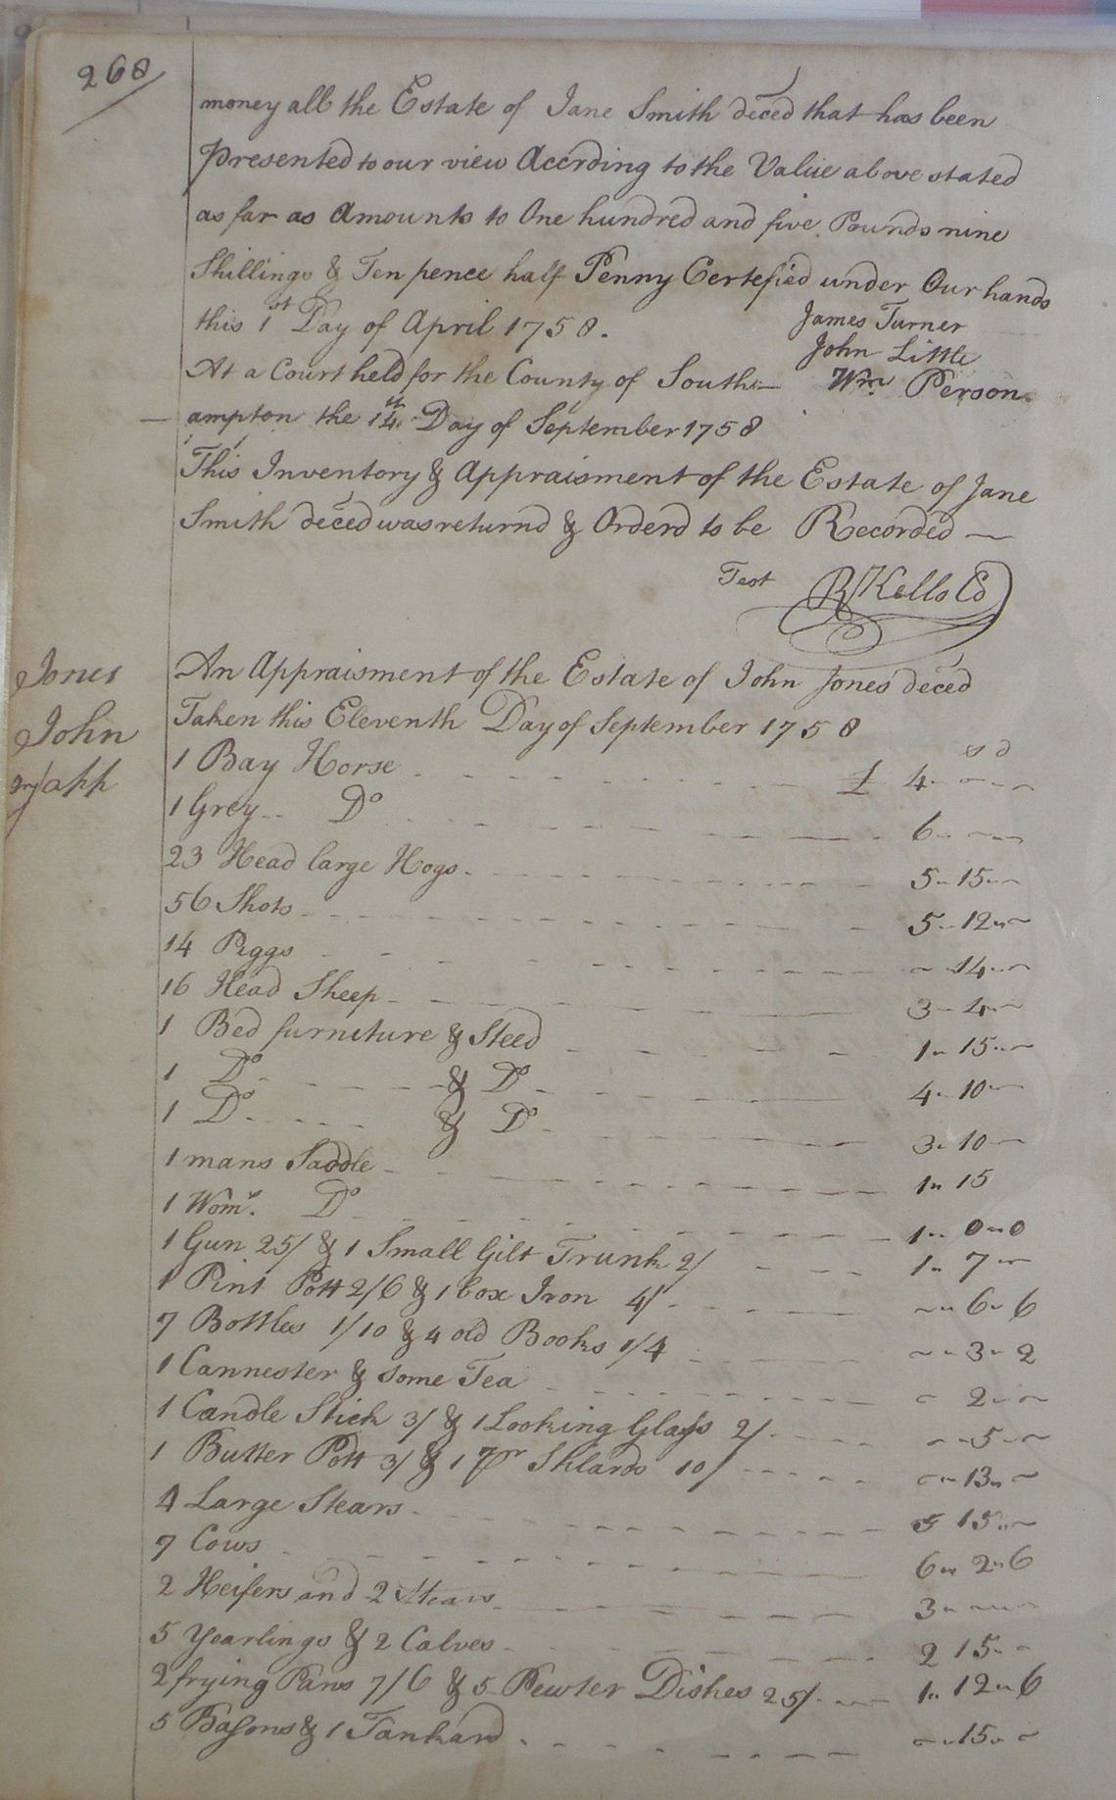 268
money all the Estate of Jane Smith deced that has been
Presented to our view Accrding to the Value above stated
as far as Amounts to One hundred and five Pounds nine
Shillings & Ten pence half Penny Certefied under Our hands
this 1st Day of April 1758.
James Turner
John Little
At a Court held for the County of South-
Wm. Person
ampton the 14th Day of September 1758
This Inventory & Appraisment of the Estate of Jane
Smith deced was returnd & Orderd to be Recorded
Test R Kello Cd
Jones
John
An Appraisment of the Estate of John Jones deced
Taken this Eleventh Day of September 1758
s d
1 Bay Horse £ 4 - -
1 Grey Do 6 - -
23 Head large Hogs 5 - 15 -
56 Shots 5 - 12 -
14 Piggs - 14 -
16 Head Sheep 3 - 4 -
1 Bed furniture & Steed 1 - 15 -
1 Do & Do 4 - 10 -
1 Do & Do 3 - 10 -
1 mans Saddle 1 - 15
1 Woms. Do 1 - 0 - 0
1 Gun 25/ & 1 Small Gilt Trunk 2/ 1 - 7 -
1 Pint Pott 2/6 & 1 box Iron 4/ - 6 - 6
7 Bottles 1/10 & 4 old Books 1/4 - 3 - 2
1 Cannester & some Tea - 2 -
1 Candle Stick 3/ & 1 Looking Glass 2/ - 5 -
1 Butter Pott 3/ & 1 pr 10/ - 13 -
4 Large Stears 5 15 -
7 Cows 6 - 2 - 6
2 Heifers and 2 Stears 3 - -
5 Yearlings & 2 Calves 2 15 -
2 frying Pans 7/6 & 5 Pewter Dishes 25/ 1 - 12 - 6
5 Basons & 1 Tankard - 15 -